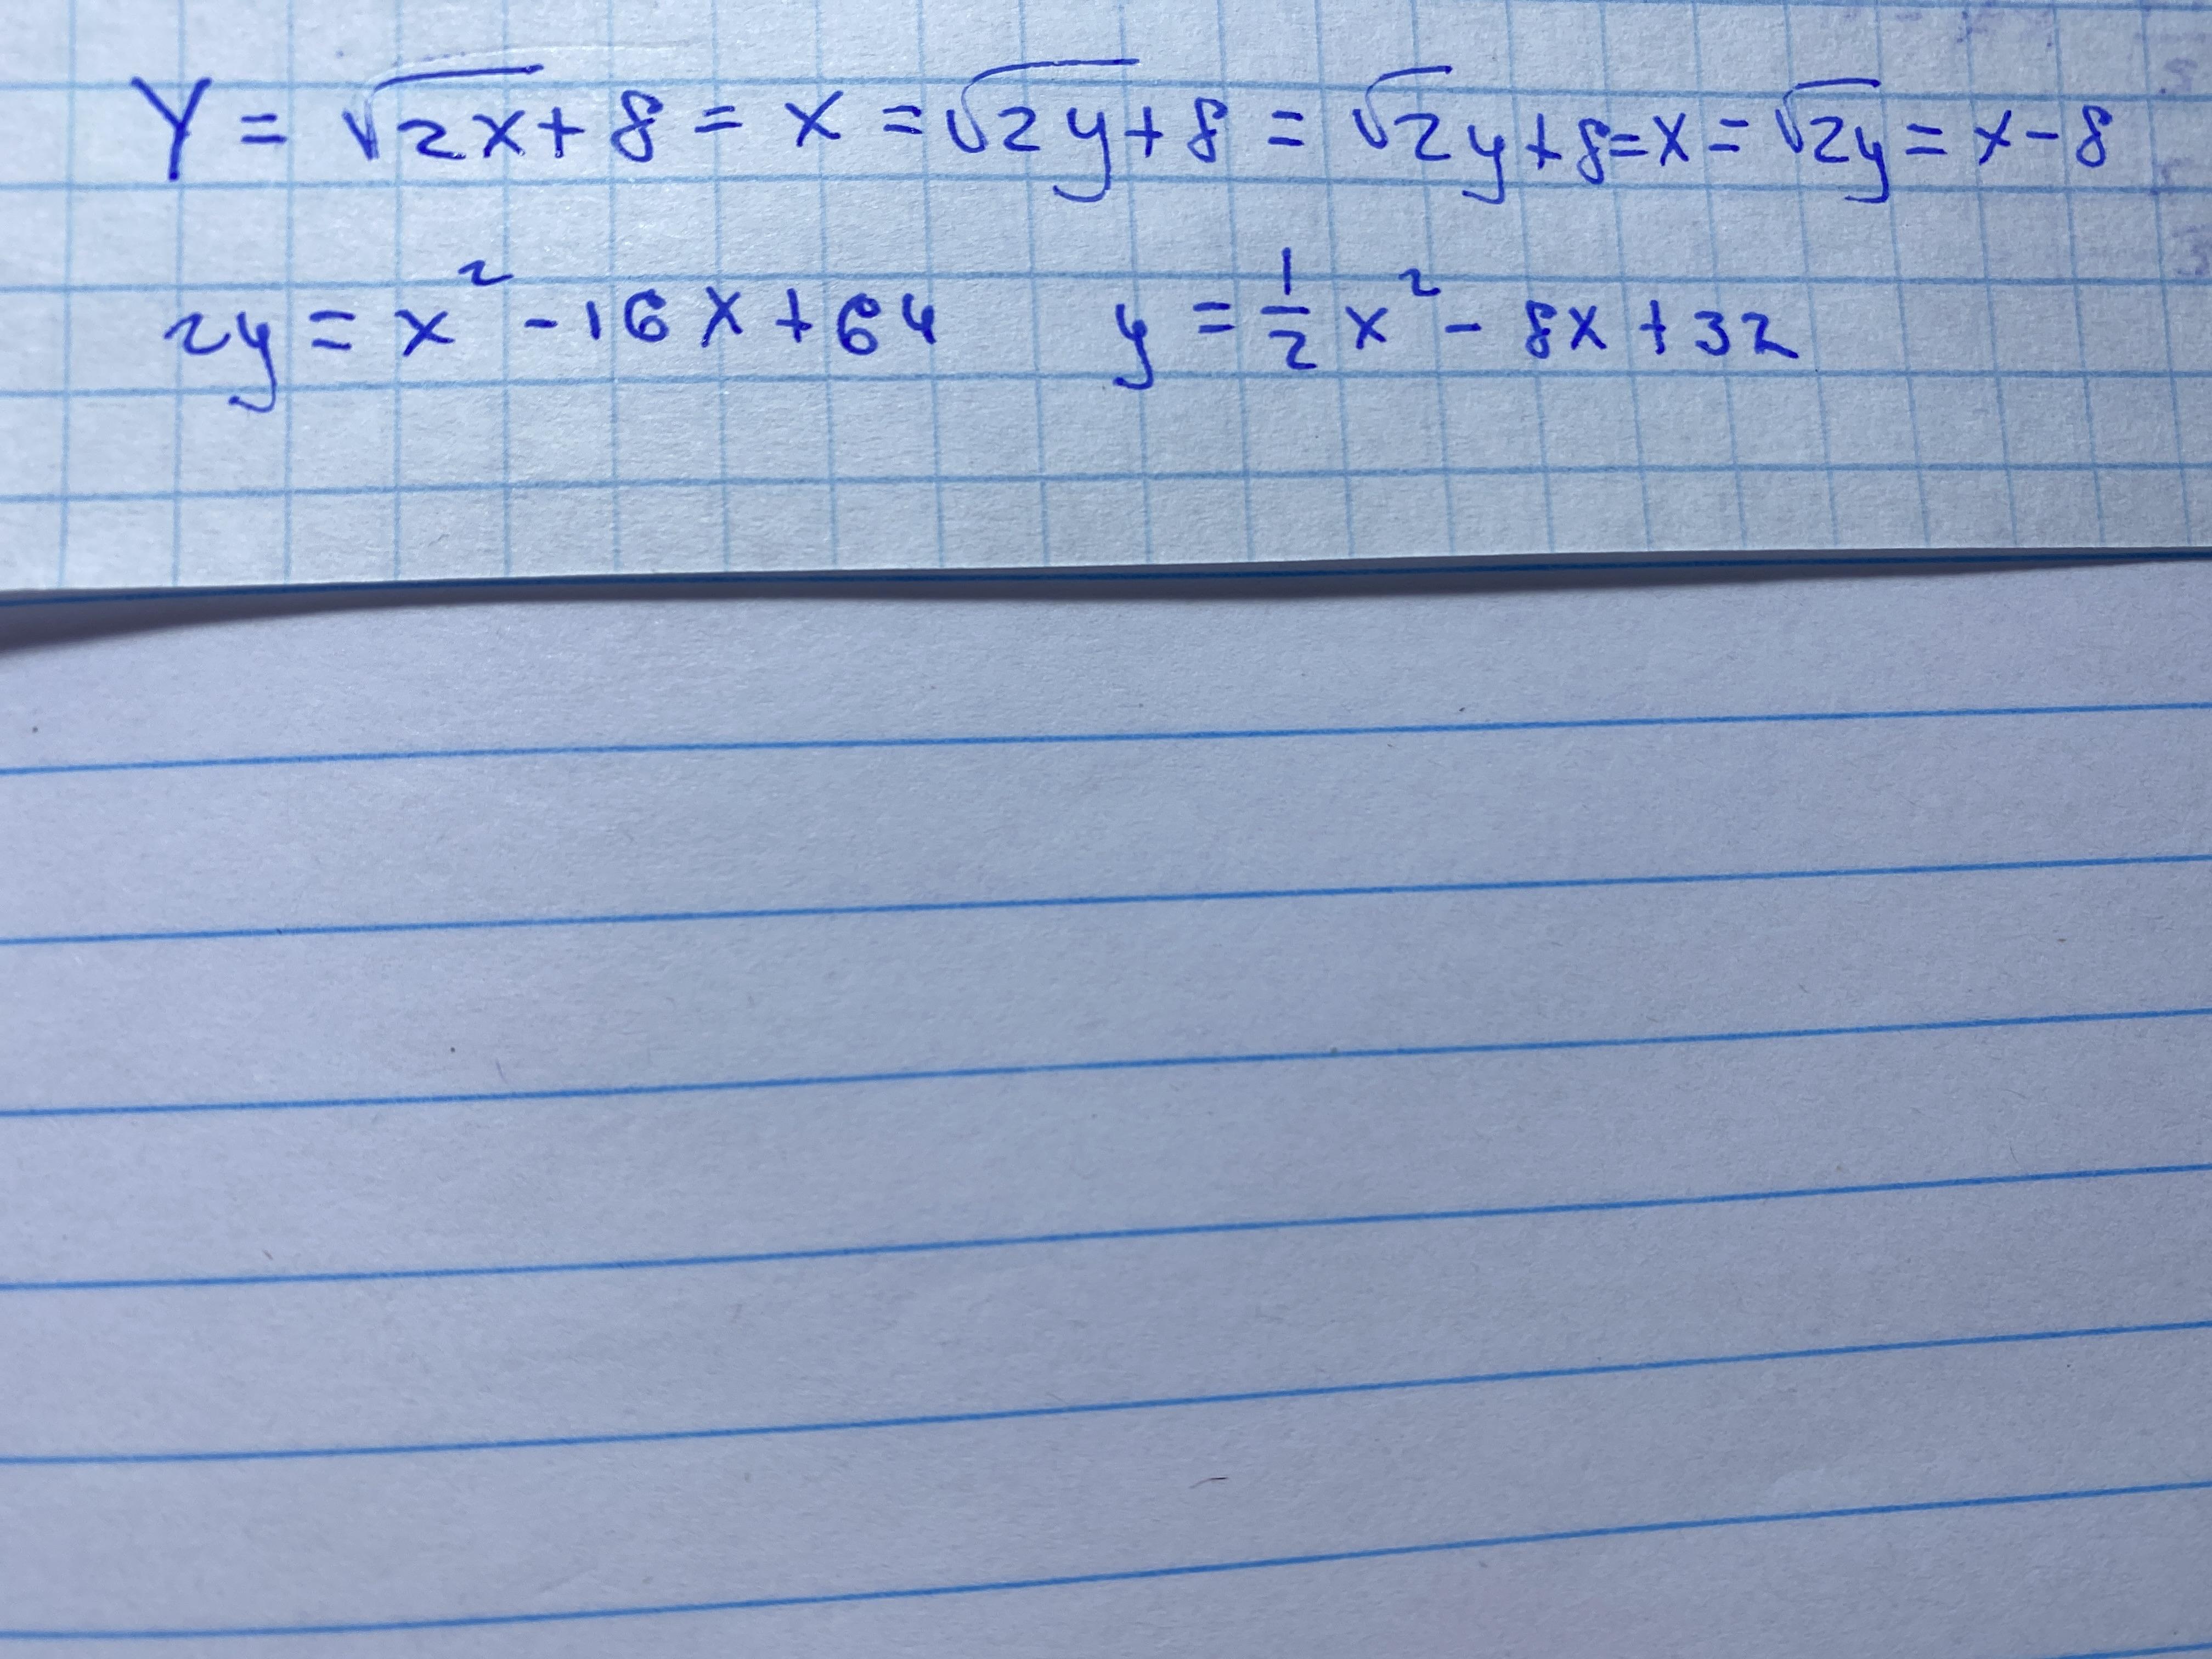 Y = √2x + 8 = x = √2y + 8 = √2y + 8 = x = √2y = x - 8
2y = x² - 16x + 64 y = 1/2 x² - 8x + 32